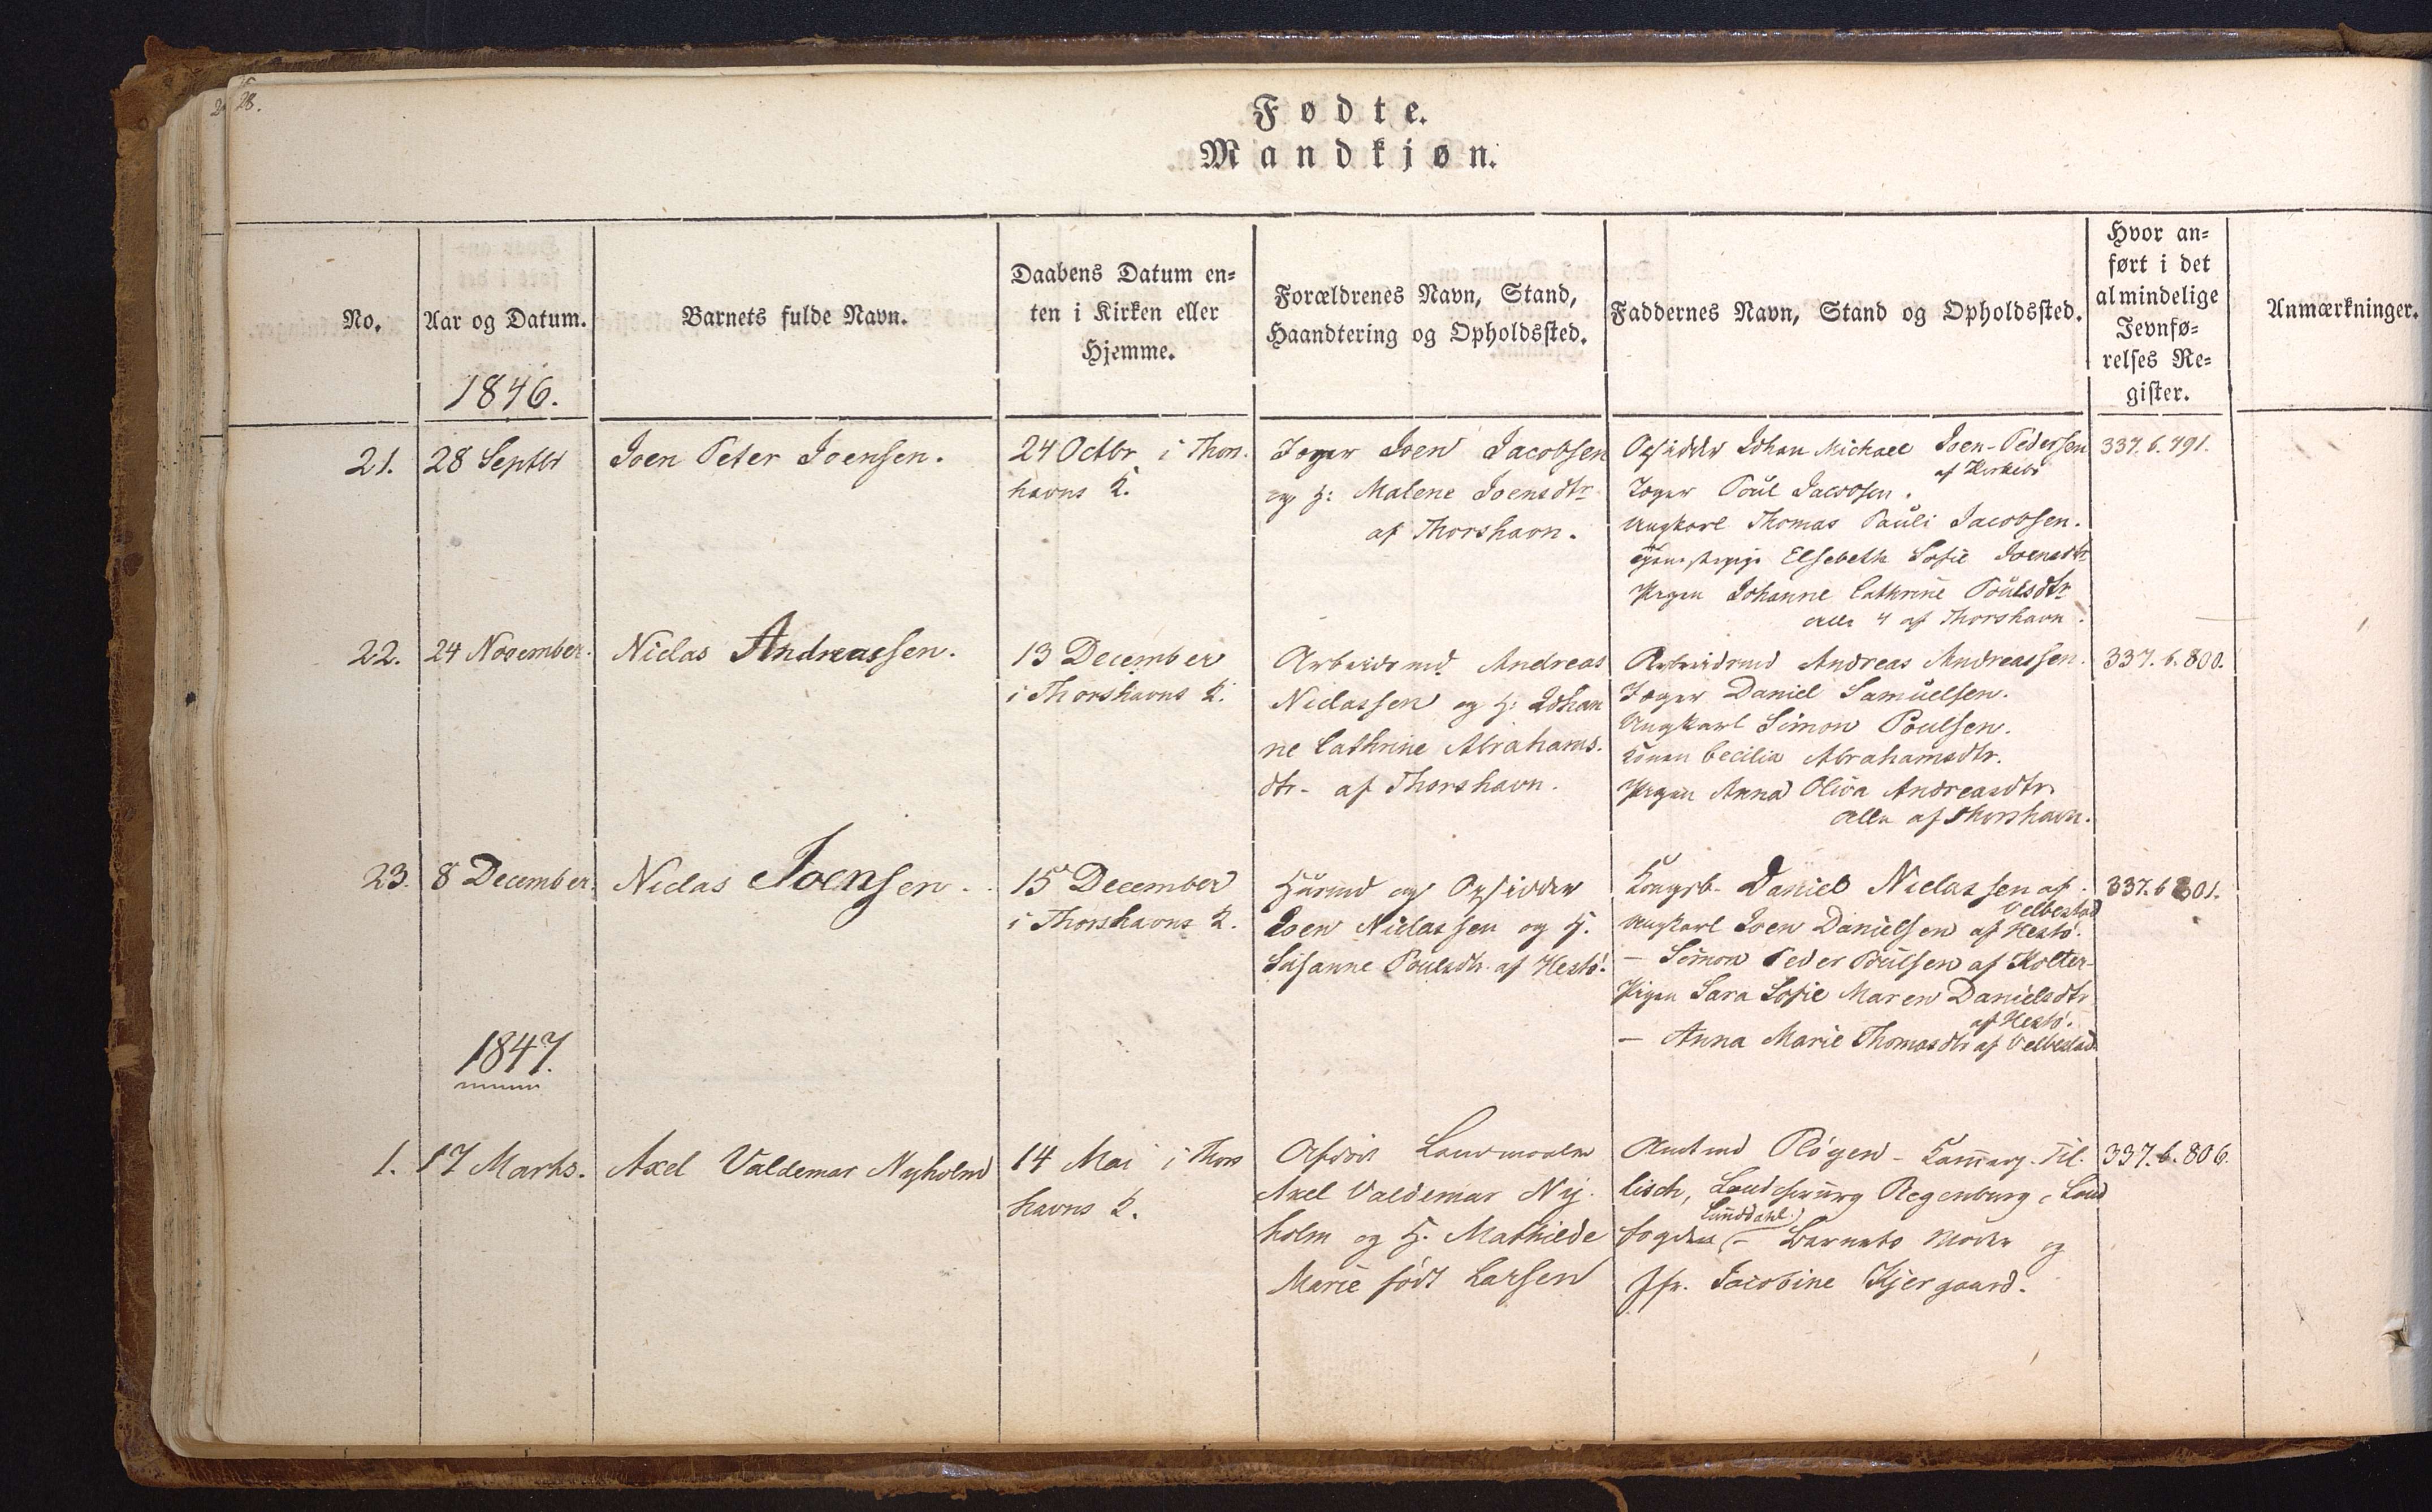 28.
Fødte.
Mandkjøn.
No.
Aar og Datum.
1846.
Barnets fulde Navn.
Daabens Datum en-
ten i Kirken eller
Hjemme.
Forældrenes Navn, Stand,
Haandtering og Opholdssted.
Faddernes Navn, Stand og Opholdssted.
Hvor an-
ført i det
almindelige
Jevnfø-
relses Re-
gister.
Anmærkninger.
21.
28 Septbr
Joen Peter Joensen.
24 Octbr i Thors
havns K.
Jæger Joen Jacobsen
og H: Malene Joensdtr
af Thorshavn.
Opsidder Johan Michael Joen-Pedersen
af Kirkebø
Jæger Poul Jacobsen.
Ungkarl Thomas Pauli Jacobsen.
Elsebeth Sofie Joensdtr
Pigen Johanne Cathrine Poulsdtr
alle 4 af Thorshavn.
337. 6. 791.
22.
24 November.
Niclas Andreassen.
13 December
i Thorshavns K.
Arbeidsmd. Andreas
Niclassen og H: Johan
ne Cathrine Abrahams.
dtr- af Thorshavn.
Arbeidsmd Andreas Andreassen.
Jæger Daniel Samuelsen.
Ungkarl Simon Poulsen.
Konen Cecilia Abrahamsdtr.
Pigen Anna Oliva Andreasdtr.
alle af Thorshavn.
337. 6. 800.
23.
8 December.
Niclas Joensen.
15 December
i Thorshavns K.
Huusmd og Opsidder
Joen Niclassen og H.
Susanne Poulsdtr. af Hestø.
Kongsb. Daniel Niclassen af
Velbestad
Ungkarl Joen Danielsen af Hestø.
- Simon Peder Poulsen af Kolter-
Pigen Sara Sofie Maren Danielsdtr
af Hestø.
- Anna Marie Thomasdtr af Velbestad
337. 6 801.
1847.
1.
17 Marts.
Axel Valdemar Nyholm
14 Mai i Thors
havns K.
Landmaaler
Axel Valdemar Ny-
holm og H. Mathilde
Marie født Larsen
Amtmd Pløyen - Kammerj. Til.
lisch, Landchirurg Regenburg, Land
Lunddahl.
fogden (- Barnets Moder og
Jfr. Jacobine Kjergaard.
337. 6. 806.